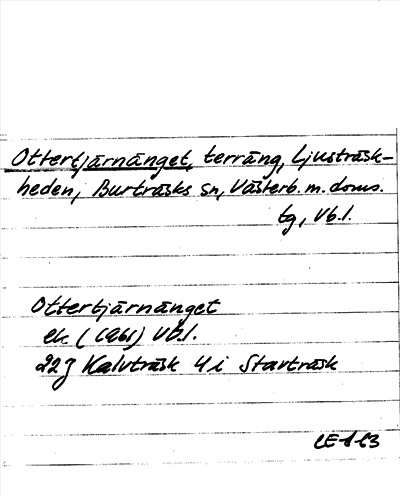 Ottertjärnänget, terräng, Ljusträsk-
heden, Burträsks sn, Västerb. m. doms.
tg, Vb. l.
Ottertjärnänget
ek (1961) Vb. l.
22J Kalvträsk 4 i Starträsk